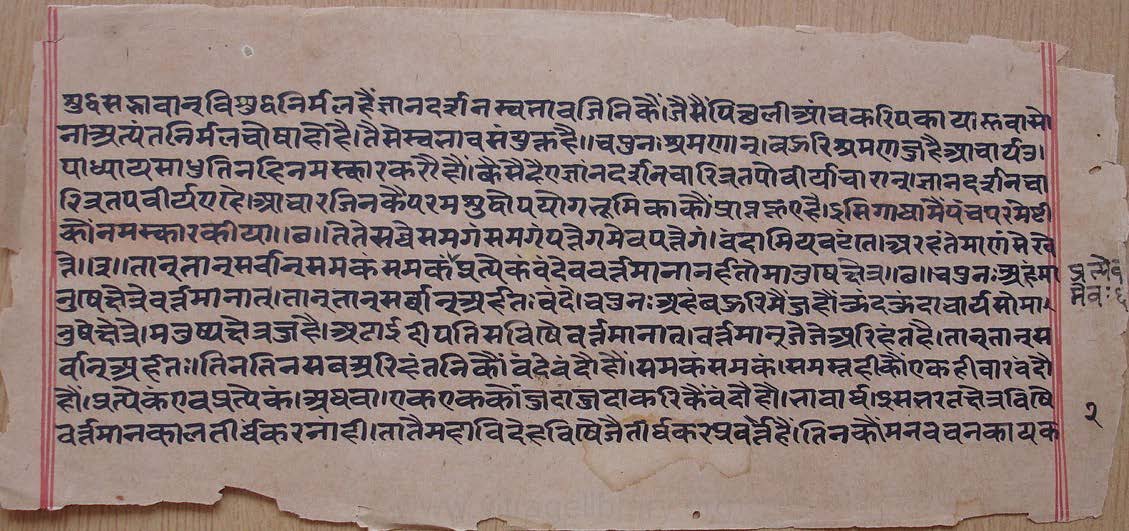 शुद्धसद्भावान् विशुद्धनिर्मल हैं ज्ञानदर्शन स्वभाव जिनिकौं। जैसैं पिछली आंच करि पकाया। स्तवा सो
ना अत्यंत निर्मल चोषा हो है। तैसे स्वभाव संयुक्त है॥ च पुनः श्रमणान्। बऊरि श्रमण जु है आचार्य उ।
पाध्याय साधु तिनहि नमस्कार करौ हौं। कैसे है ए ज्ञानदर्शनचारित्रतपोवीर्याचारान्। ज्ञानदर्शनचा
रित्रतपवीर्य ए है। आचार जिनकै परमशुद्धोपयोग भूमिका कौं प्राप्त ऊए है। इसि गाथामैं पंचपरमेष्टी
कौं नमस्कार कीया॥२॥ ते ते सव्वे समगं समगं पत्तेगमेव पत्तेगं। वंदामि य वटंता। अरहंते माणुसे खे
त्ते॥३॥ तान् तान् सर्वान् समकं समकं प्रत्येकं वंदे च वर्त्तमानानर्हतो मानुष क्षेत्रे॥३॥ च पुनः अहं मा
प्रत्येव
मेवः ६
नुष क्षेत्रे वर्त्तमानान्। तान् तान् सर्वान् अर्हतः वंदे। च पुनः अहं बऊरि मैं जु हौं कुंदकुंदाचार्य सो मा।
नुषे क्षेत्रे। मनुष्य क्षेत्र जु है। अढाई द्वीप तिस विषे वर्त्तमानान्। वर्त्तमान् जे जे अरिहंत है। तान् तान् स
र्वान् अर्हतः। तिन तिन सब अरिहंतनिकौं वंदे वंदौ हौं। समकं समकं। समस्तही कौं एकही वार वंदौ
हौं। प्रत्येकं एव प्रत्येकं। अथवा। एक एक कौं जुदा जुदा करिकैं वंदौ हौं। भावार्थ। इस भरतक्षेत्र विषे
२
वर्त्तमानकाल तीर्थंकर नाही। तातै महाविदेह विषे जे तीर्थकर प्रवर्त्तै है। तिनकौं मन वचन काय क